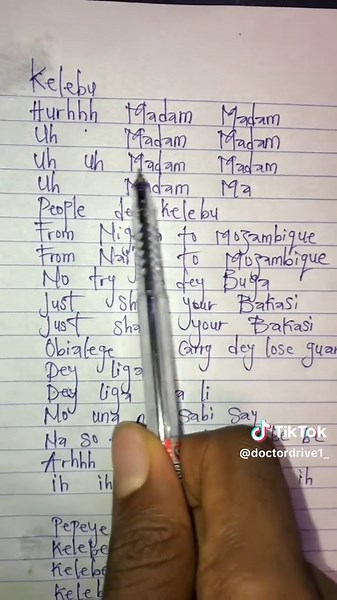 Kelebu
Hurhhh Madam Madam
Uh Madam Madam
Uh uh Madam Madam
Uh Madam Ma
People dey Kelebu
From Nig to Mozambique
From Nai to Mozambique
No try dey Buga
Just sh your Bakasi
Just sha your Bakasi
Obialege Gang dey lose guar
Dey liga
Dey liga a li
Mo una sabi Say
Na so be
Arhhh
ih ih ih
Pepeye
Kelebe
Kelebe
Keleb
TikTok
@doctordrive1_